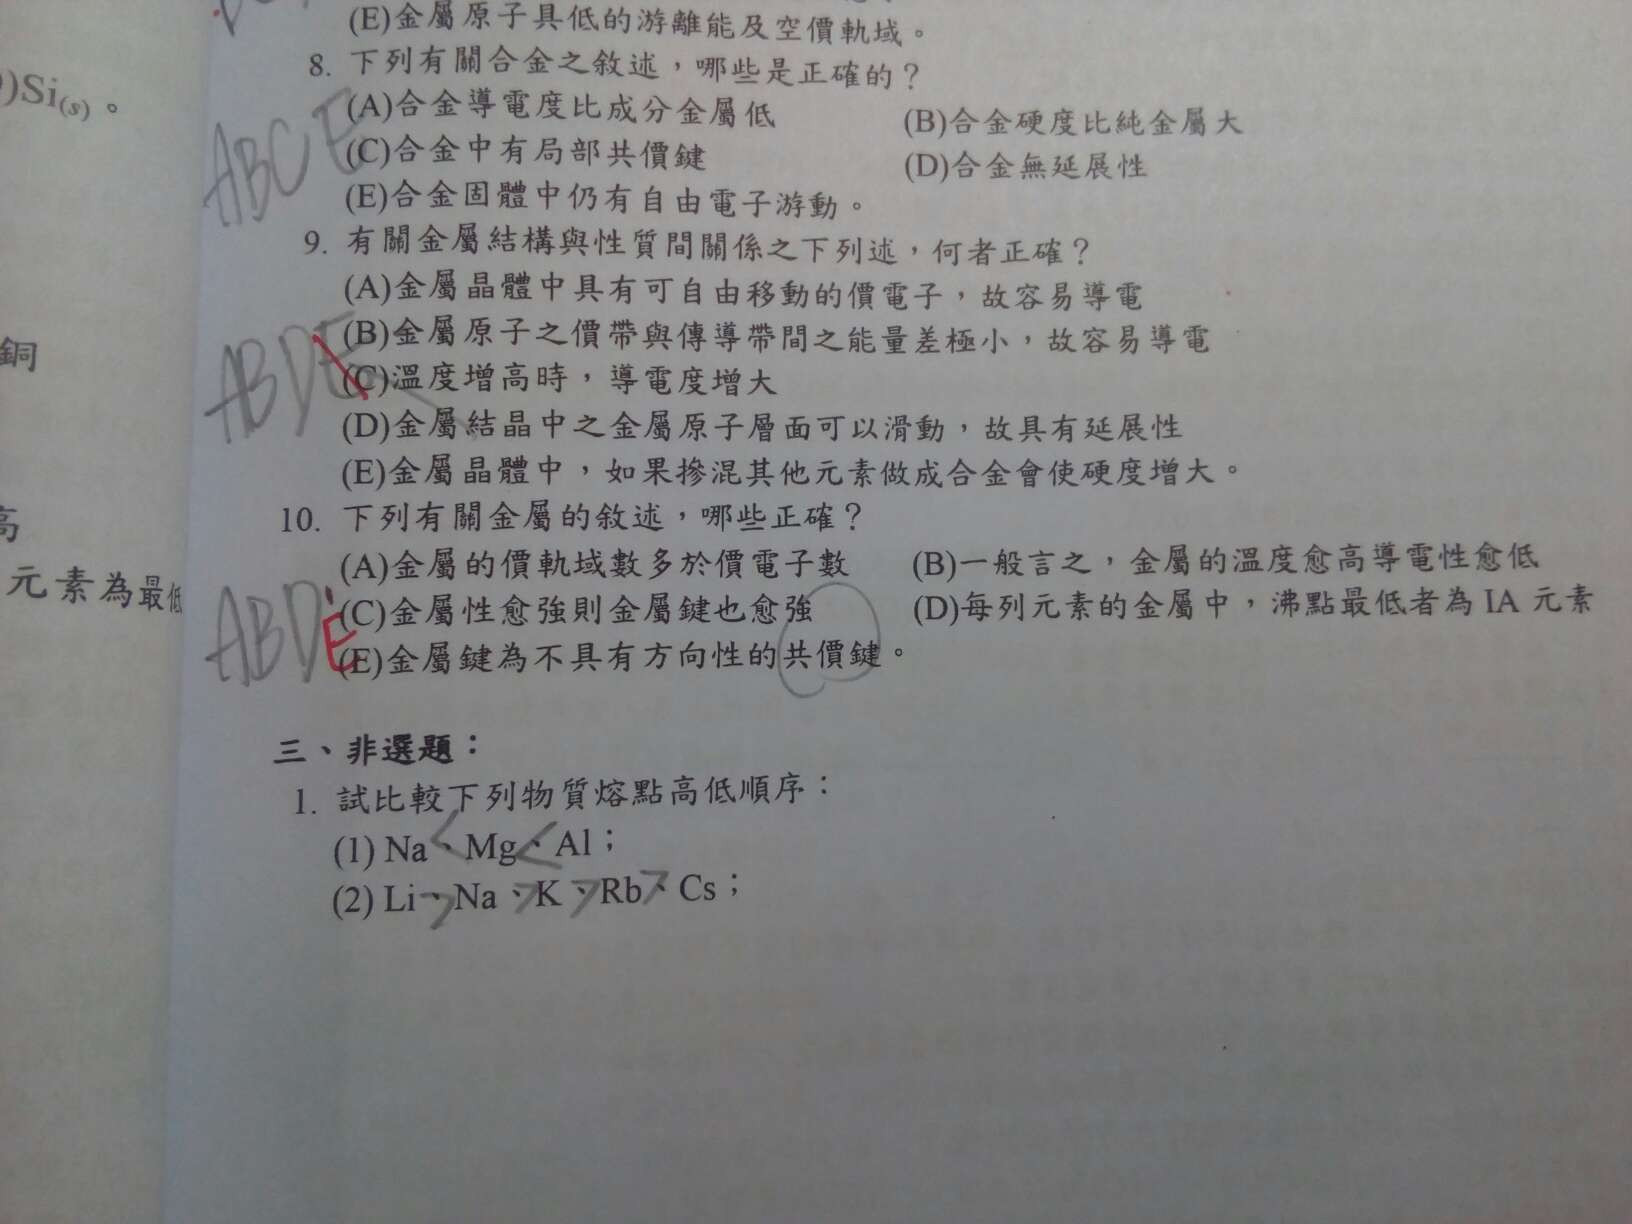 (E)金屬原子具低的游離能及空價軌域。
8. 下列有關合金之敘述，哪些是正確的？
)Si(s)。
(A)合金導電度比成分金屬低 (B)合金硬度比純金屬大
ABCE
(C)合金中有局部共價鍵 (D)合金無延展性
(E)合金固體中仍有自由電子游動。
9. 有關金屬結構與性質間關係之下列述，何者正確？
(A)金屬晶體中具有可自由移動的價電子，故容易導電
(B)金屬原子之價帶與傳導帶間之能量差極小，故容易導電
銅
ABDE
(C)溫度增高時，導電度增大
(D)金屬結晶中之金屬原子層面可以滑動，故具有延展性
(E)金屬晶體中，如果摻混其他元素做成合金會使硬度增大。
10. 下列有關金屬的敘述，哪些正確？
高
(A)金屬的價軌域數多於價電子數 (B)一般言之，金屬的溫度愈高導電性愈低
元素為最低
(C)金屬性愈強則金屬鍵也愈強 (D)每列元素的金屬中，沸點最低者為IA元素
ABDE
(E)金屬鍵為不具有方向性的共價鍵。
三、非選題：
1. 試比較下列物質熔點高低順序：
(1) Na、<Mg、<Al；
(2) Li、>Na、>K、>Rb、>Cs；